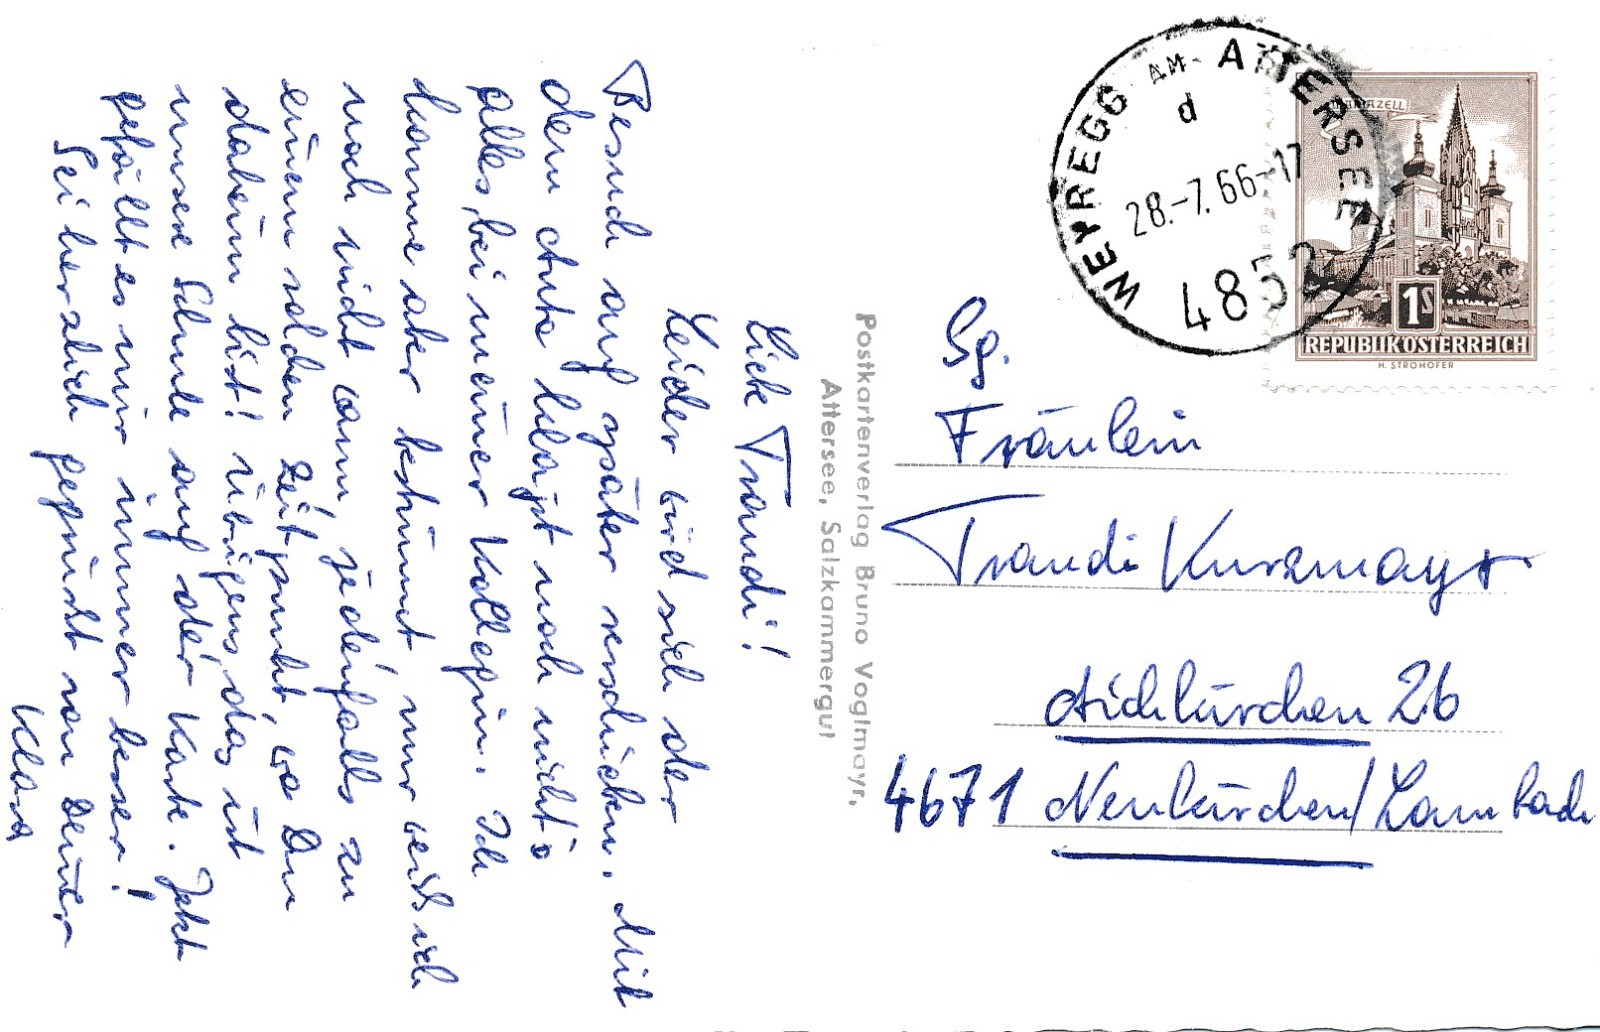 Liebe Traudi!
Leider wird sich der
Besuch auf später verschieben. Mit
dem Auto klappt noch nicht
alles, bei meiner Kollegin. Ich
komme aber bestimmt, nur weiß ich
noch nicht wann, jedenfalls zu
einem solchen Zeitpunkt, wo Du
daheim bist! Übrigens, das ist
unsere Schule auf der Karte. Jetzt
gefällt es mir immer besser!
Sei herzlich gegrüßt von Deiner
Klara
Postkartenverlag Bruno Voglmayr,
Attersee, Salzkammergut
WEYREGG AM ATTERSEE
d
28.-7.66-17
4852
MARIAZELL
1S
REPUBLIK ÖSTERREICH
H. STROHOFER
Sg.
Fräulein
Traudi Kurzmayr
Aichkirchen 26
4671 Neukirchen/Lambach